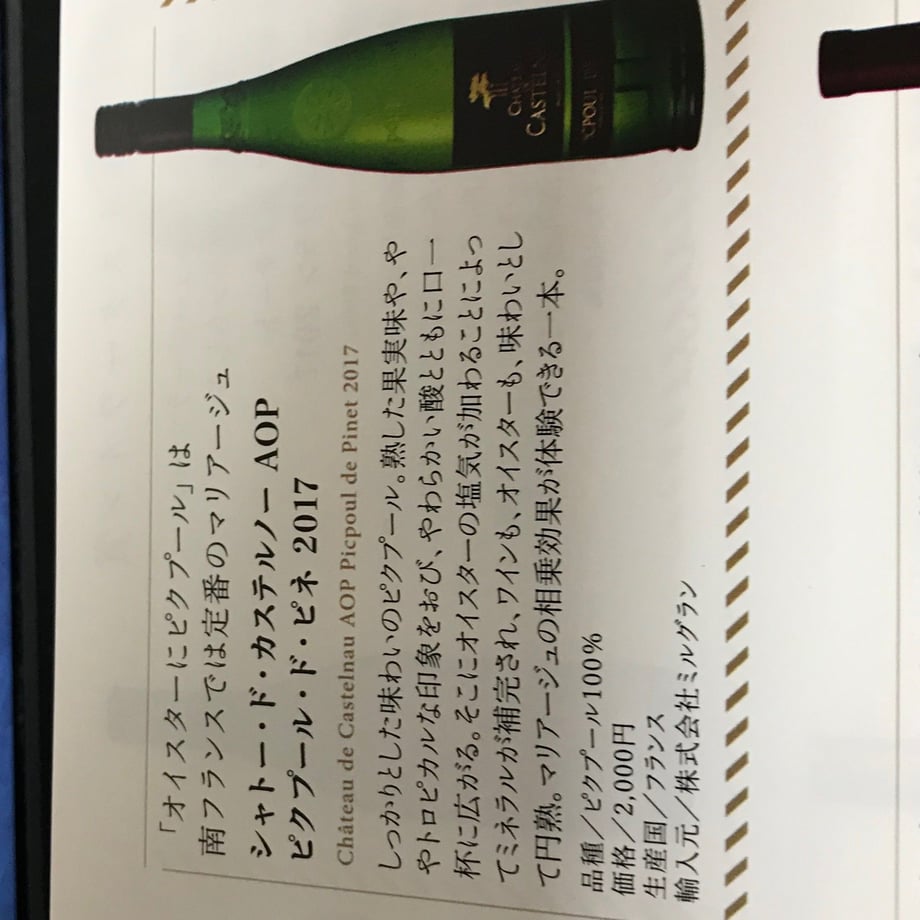 「オイスターにピクプール」は
南フランスでは定番のマリアージュ
シャトー・ド・カステルノー AOP
ピクプール・ド・ピネ 2017
Château de Castelnau AOP Picpoul de Pinet 2017
しっかりとした味わいのピクプール。熟した果実味や、や
やトロピカルな印象をおび、やわらかい酸とともに口一
杯に広がる。そこにオイスターの塩気が加わることによっ
てミネラルが補完され、ワインも、オイスターも、味わいとし
て円熟。マリアージュの相乗効果が体験できる一本。
品種／ピクプール100％
価格／2,000円
生産国／フランス
輸入元／株式会社ミルグラン
CASTELN